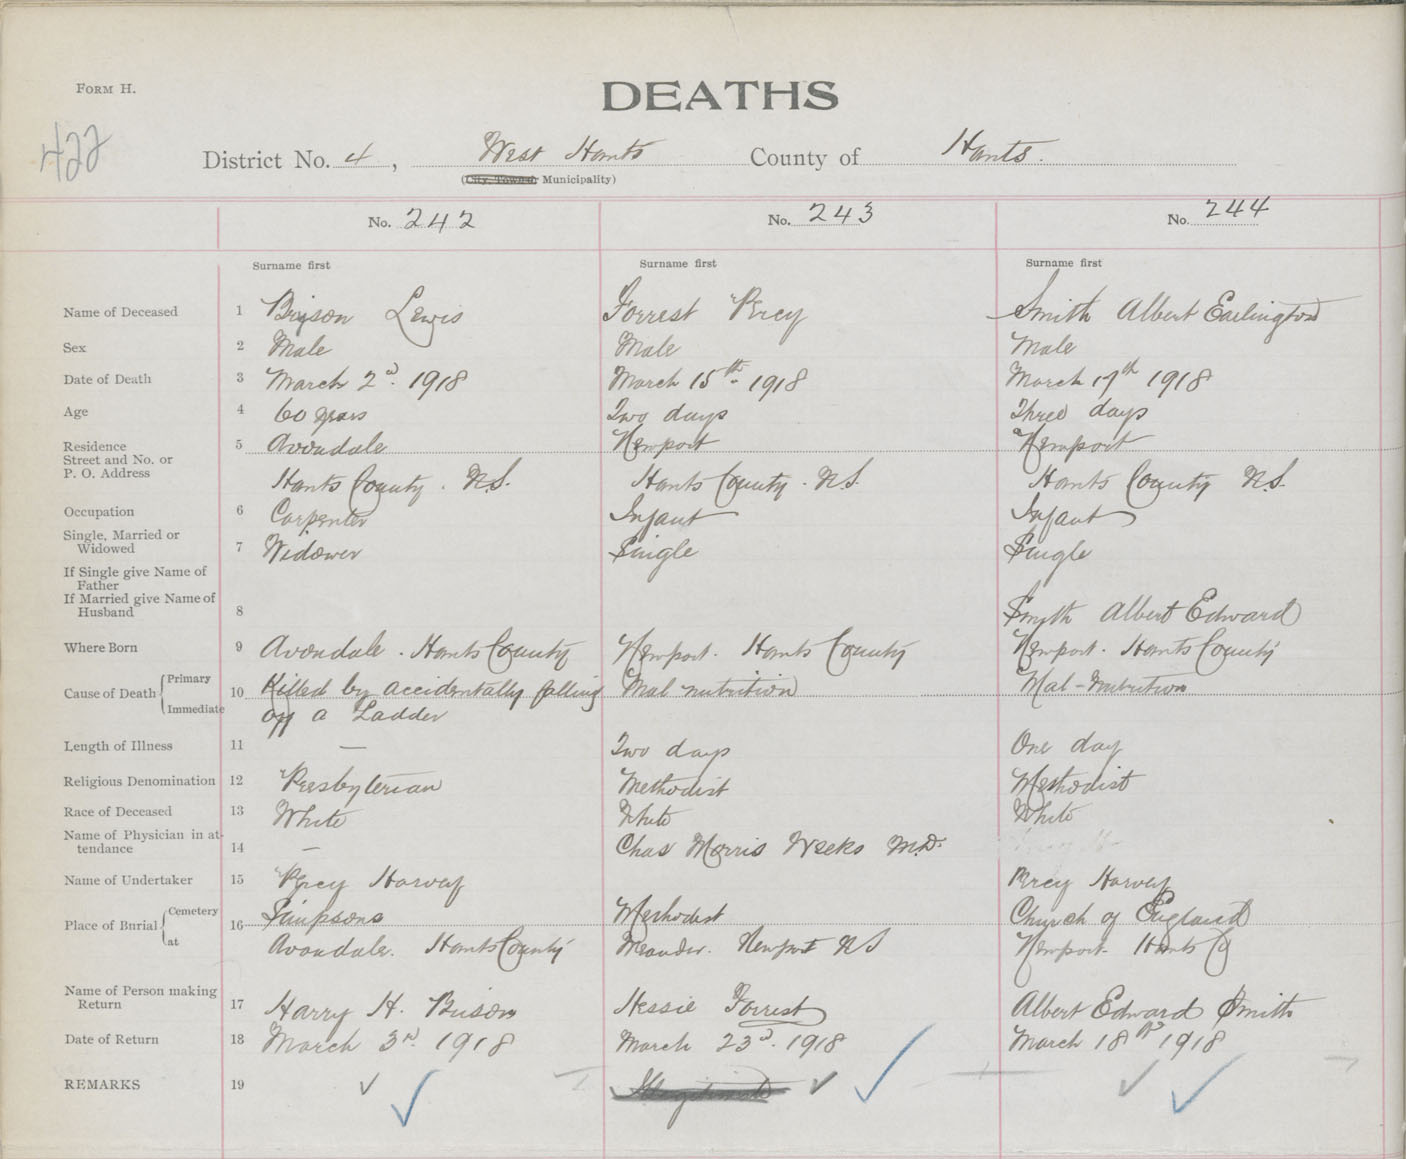 FORM H.
DEATHS
422
District No. 4, West Hants County of Hants.
(City, Town or Municipality)
No. 242 No. 243 No. 244
Surname first Surname first Surname first
Name of Deceased 1 Bryson Lewis Forrest Percy Smith Albert Earlington
Sex 2 Male Male Male
Date of Death 3 March 2d. 1918 March 15th. 1918 March 17th 1918
Age 4 60 years Two days Three days
Residence 5 Avondale Newport Newport
Street and No. or
P. O. Address Hants County. N.S. Hants County. N.S. Hants County N.S.
Occupation 6 Carpenter Infant Infant
Single, Married or
Widowed 7 Widower Single Single
If Single give Name of
Father
If Married give Name of
Husband 8 Smyth Albert Edward
Where Born 9 Avondale. Hants County Newport. Hants County Newport. Hants County
Cause of Death { Primary 10 Killed by accidentally falling Mal nutrition Mal-nutrition
Immediate off a Ladder
Length of Illness 11 — Two days One day
Religious Denomination 12 Presbyterian Methodist Methodist
Race of Deceased 13 White White White
Name of Physician in at-
tendance 14 — Chas Morris Weeks M.D.
Name of Undertaker 15 Percy Harvey Percy Harvey
Place of Burial { Cemetery 16 Simpsons Methodist Church of England
at Avondale. Hants County Meander. Newport NS Newport. Hants Co
Name of Person making
Return 17 Harry H. Brison Hessie Forrest Albert Edward Smith
Date of Return 18 March 3rd. 1918 March 23d. 1918 March 18th 1918
REMARKS 19 Illegitimate